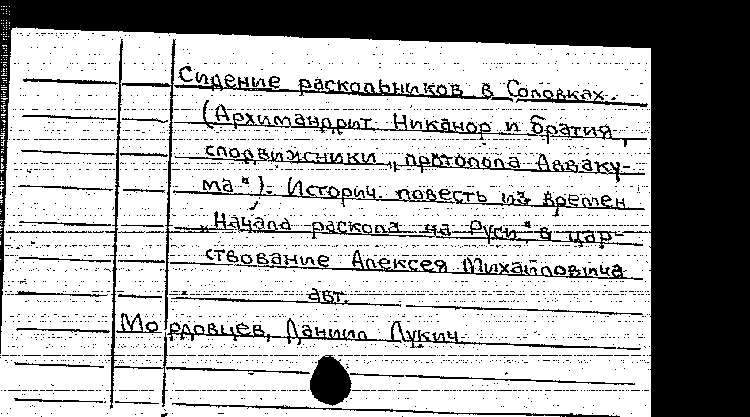 Сидение раскольников в Соловках.
(Архимандрит Никанор и братия,
сподвижники „протопопа Авваку-
ма"). Историч. повесть из времен
„Начала раскола на Руси" в цар-
ствование Алексея Михайловича
авт.
Мордовцев, Даниил Лукич.